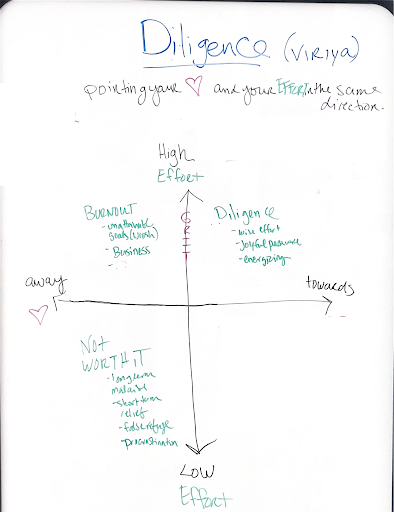 Diligence (VIRIYA)
pointing your ♡ and your EFFORT in the same
direction.
High
Effort
BURNOUT
- unattainable
goals (crash)
- Business
-
GRIT
Diligence
- wise effort
- joyful
- energizing
away
♡
towards
Not
WORTH IT
- long term
malaise
- short term
relief
- false refuge
- procrastination
LOW
Effort